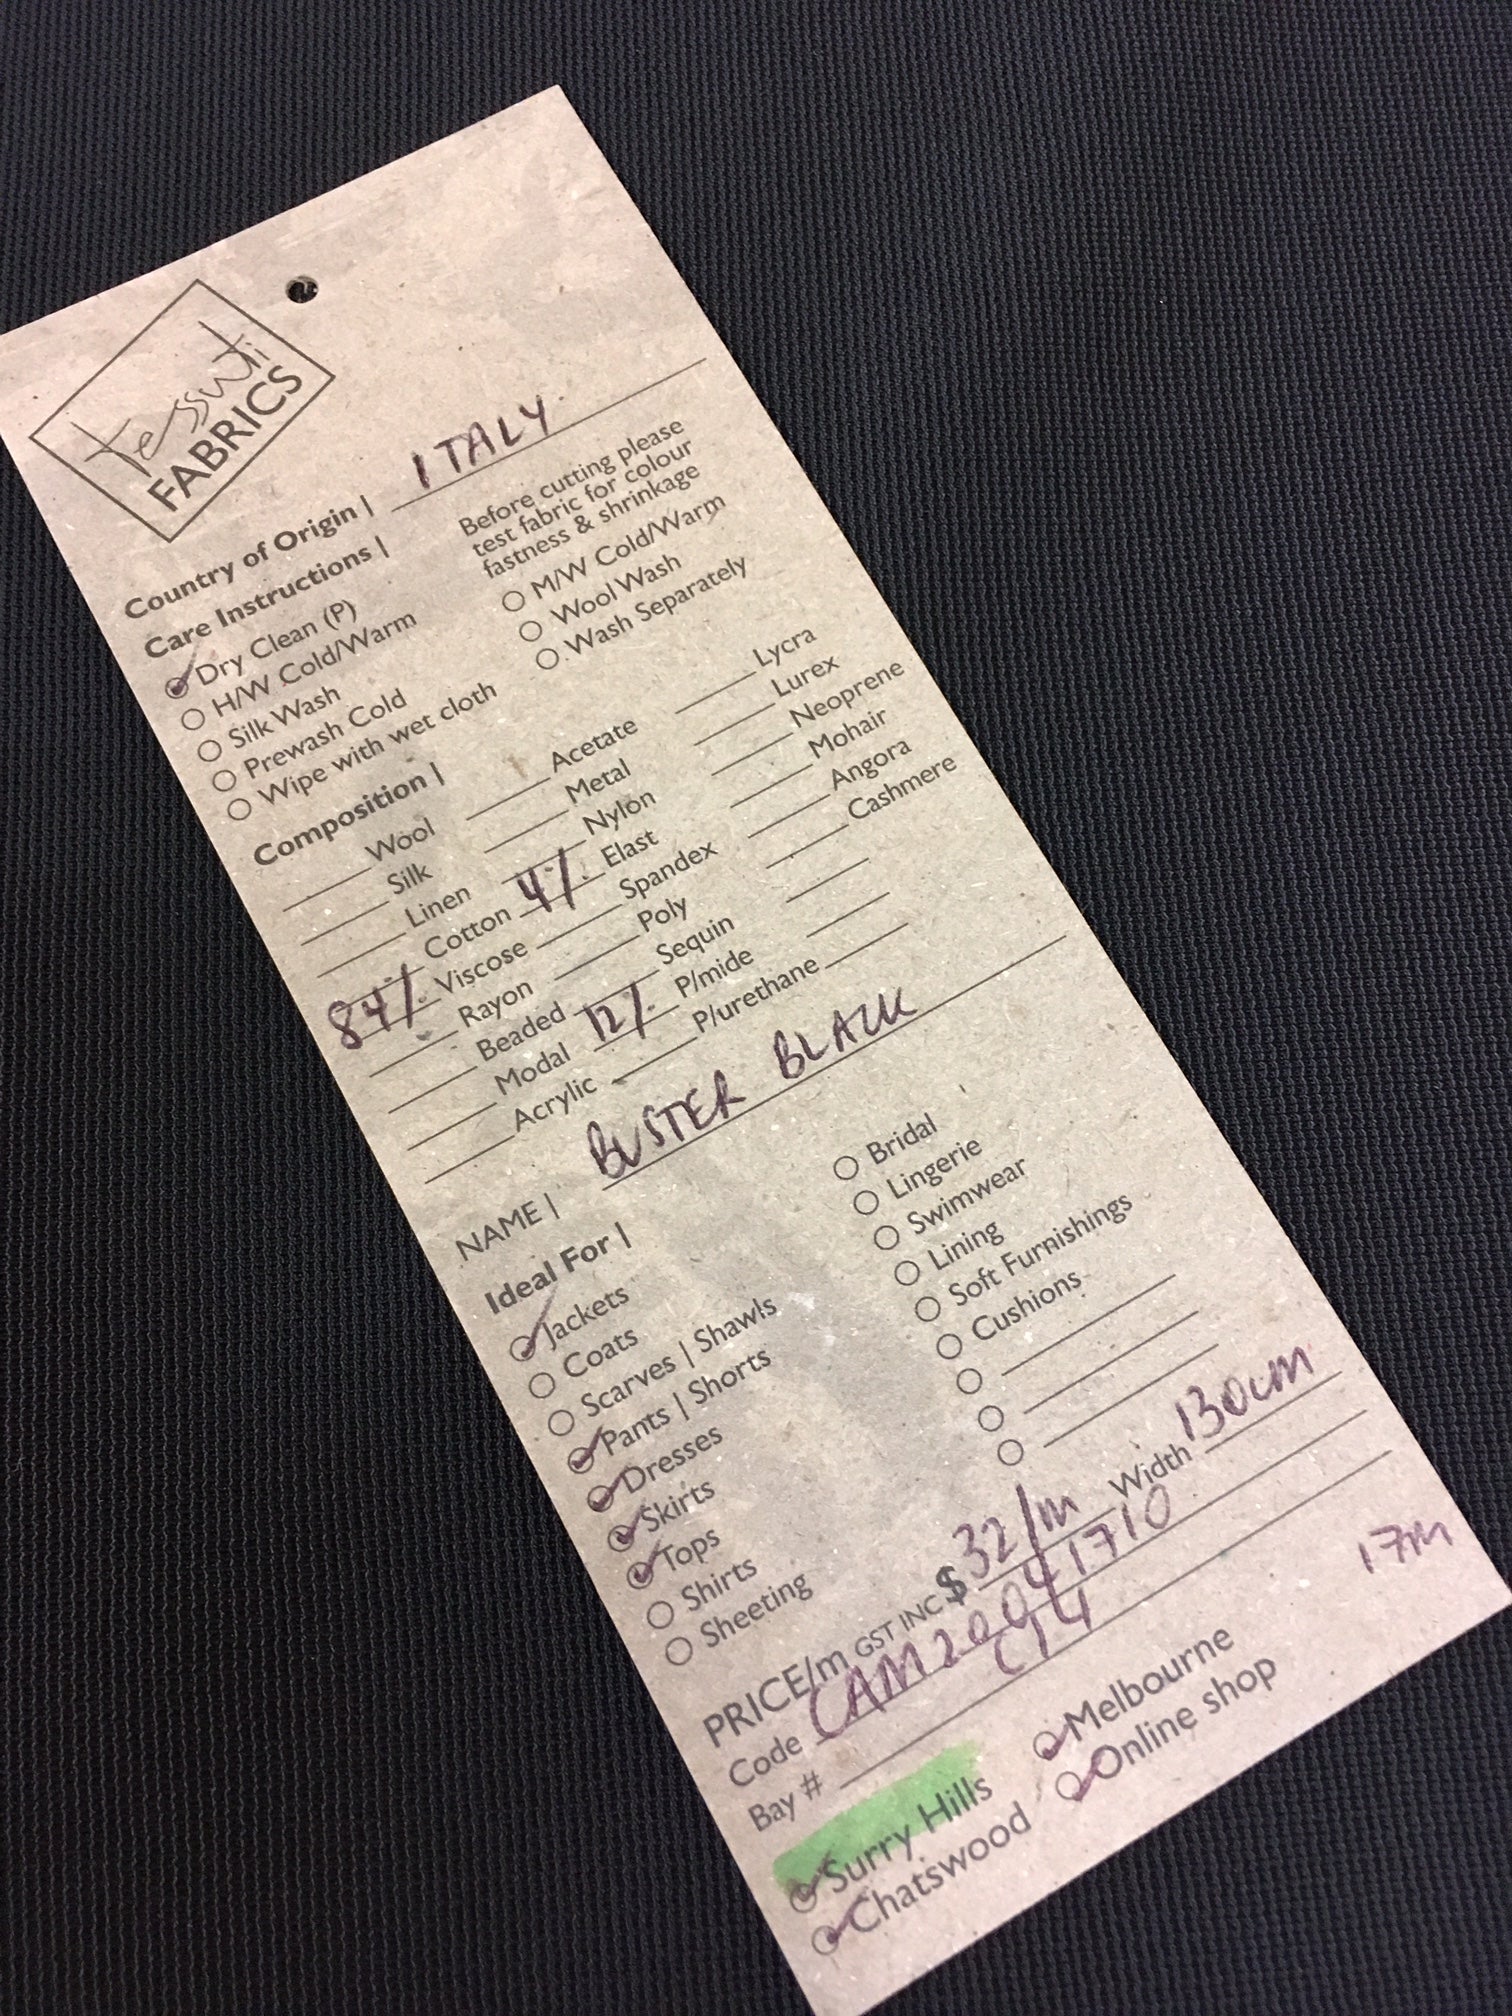 tessuti
FABRICS
Country of Origin | ITALY
Care Instructions |
Before cutting please
test fabric for colour
fastness & shrinkage
Dry Clean (P)
H/W Cold/Warm
Silk Wash
Prewash Cold
Wipe with wet cloth
M/W Cold/Warm
Wool Wash
Wash Separately
Composition |
Wool
Silk
Linen
Cotton
84% Viscose
Rayon
Beaded
Modal
Acrylic
Acetate
Metal
Nylon
4% Elast
Spandex
Poly
Sequin
12% P/mide
P/urethane
Lycra
Lurex
Neoprene
Mohair
Angora
Cashmere
NAME | BUSTER BLACK
Ideal For |
Jackets
Coats
Scarves | Shawls
Pants | Shorts
Dresses
Skirts
Tops
Shirts
Sheeting
Bridal
Lingerie
Swimwear
Lining
Soft Furnishings
Cushions
PRICE/m GST INC $ 32/m Width 130cm
Code CAM20041710
Bay # C14
17m
Surry Hills
Chatswood
Melbourne
Online shop